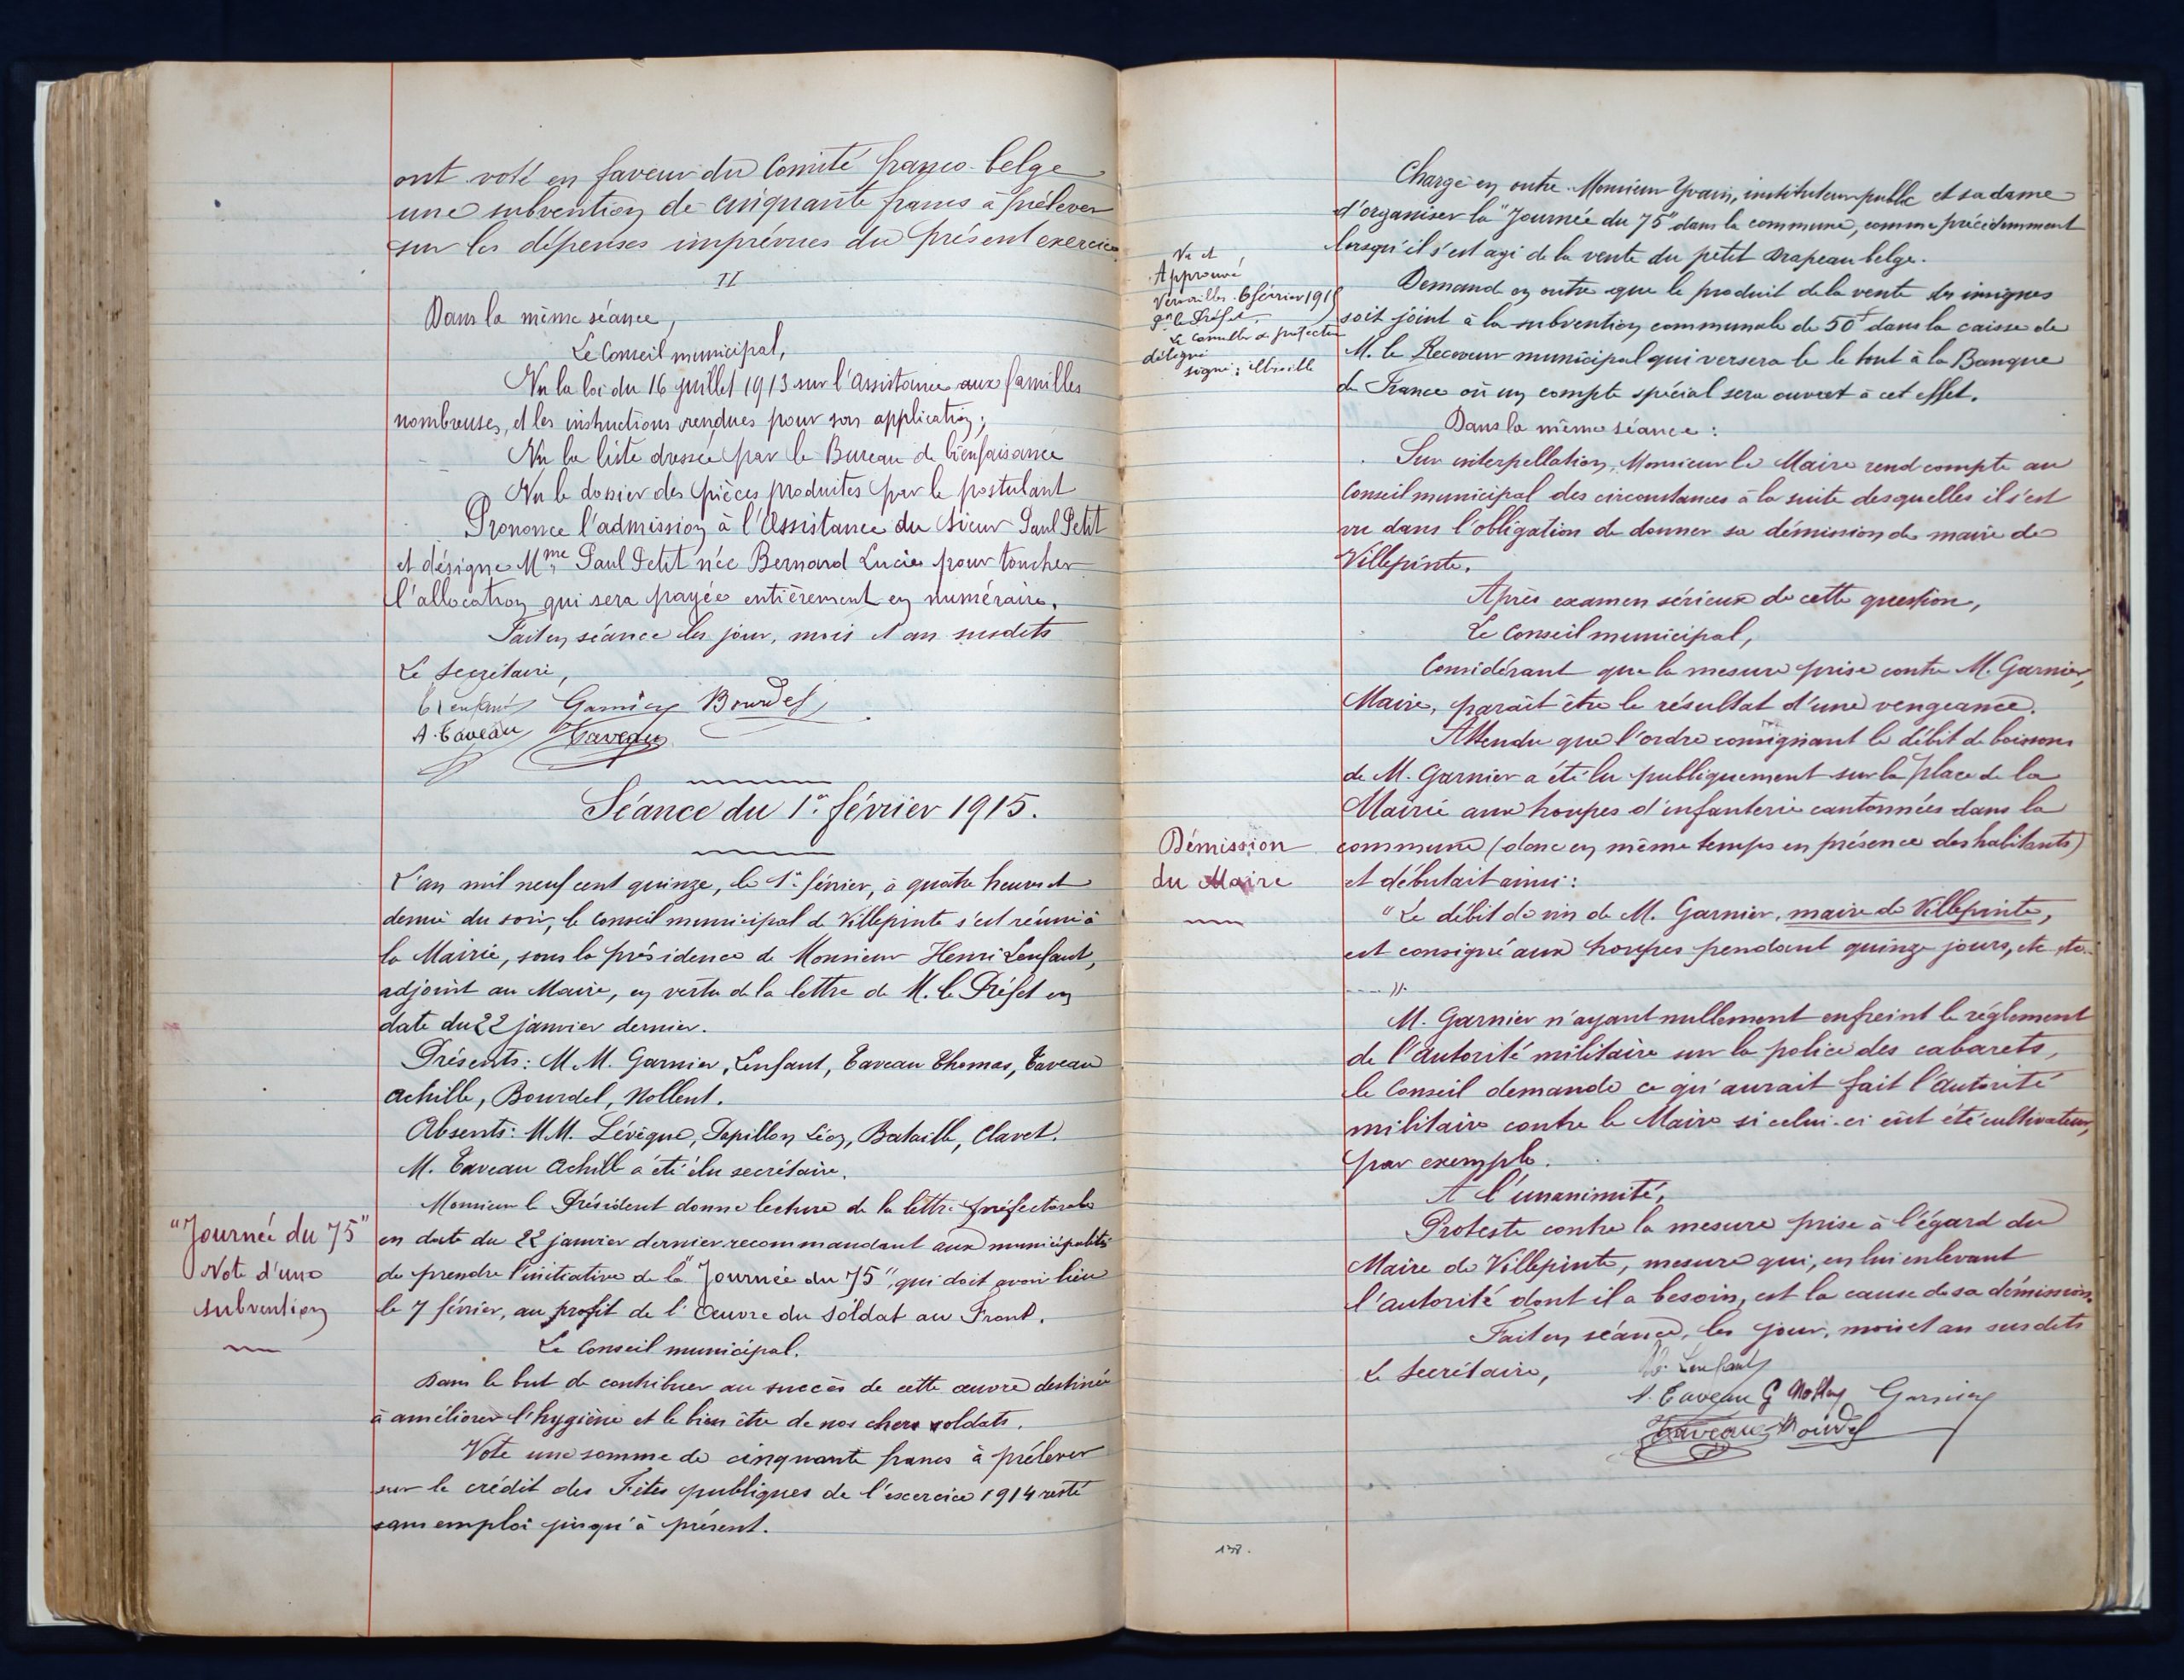 ont voté en faveur du Comité franco-belge
une subvention de cinquante francs à prélever
sur les dépenses imprévues du présent exercice
II
Dans la même séance,
Le Conseil municipal,
Vu la loi du 16 juillet 1913 sur l'Assistance aux familles
nombreuses, et les instructions rendues pour son application;
Vu la liste dressée par le Bureau de bienfaisance
Vu le dossier des pièces produites par le postulant
Prononce l'admission à l'Assistance du sieur Paul Petit
et désigne Mme Paul Petit née Bernard Lucie pour toucher
l'allocation qui sera payée entièrement en numéraire.
Fait en séance les jour, mois et an susdits
Le Secrétaire,
Lenfant Garnier Bourdel
A. Taveau Taveau
Séance du 1er février 1915.
L'an mil neuf cent quinze, le 1er février, à quatre heures et
demie du soir, le Conseil municipal de Villepinte s'est réuni à
la Mairie, sous la présidence de Monsieur Henri Lenfant,
adjoint au Maire, en vertu de la lettre de M. le Préfet en
date du 22 janvier dernier.
Présents: M.M. Garnier, Lenfant, Taveau Thomas, Taveau
Achille, Bourdel, Nollent.
Absents: MM. Lévêque, Papillon Léon, Bataille, Clavet.
M. Taveau Achille a été élu secrétaire.
"Journée du 75"
Vote d'une
subvention
Monsieur le Président donne lecture de la lettre préfectorale
en date du 22 janvier dernier recommandant aux municipalités
de prendre l'initiative de la "Journée du 75", qui doit avoir lieu
le 7 février, au profit de l'Œuvre du Soldat au Front.
Le Conseil municipal.
Dans le but de contribuer au succès de cette œuvre destinée
à améliorer l'hygiène et le bien être de nos chers soldats.
Vote une somme de cinquante francs à prélever
sur le crédit des Fêtes publiques de l'exercice 1914 resté
sans emploi jusqu'à présent.
Chargé en outre Monsieur Yvain, instituteur public et sa dame
d'organiser la "Journée du 75" dans la commune, comme précédemment
lorsqu'il s'est agi de la vente du petit drapeau belge.
Demand en outre que le produit de la vente des insignes
soit joint à la subvention communale de 50f dans la caisse de
M. le Receveur municipal qui versera le le tout à la Banque
de France où un compte spécial sera ouvert à cet effet.
Vu et
Approuvé
Versailles. 6 février 1915
Pn le Préfet
Le Conseiller de préfecture
délégué
signé:
Dans la même séance:
Sur interpellation, Monsieur le Maire rend compte au
Conseil municipal des circonstances à la suite desquelles il s'est
vu dans l'obligation de donner sa démission de maire de
Villepinte.
Après examen sérieux de cette question,
Le Conseil municipal,
Considérant que la mesure prise contre M. Garnier,
Maire, paraît être le résultat d'une vengeance.
Attendu que l'ordre consignant le débit de boissons
de M. Garnier a été lu publiquement sur la place de la
Mairie aux troupes d'infanterie cantonnées dans la
commune (donc en même temps en présence des habitants)
et débutait ainsi:
Démission
du Maire
"Le débit de vin de M. Garnier, maire de Villepinte,
est consigné aux troupes pendant quinze jours, etc etc...
..... ".
M. Garnier n'ayant nullement enfreint le réglement
de l'autorité militaire sur la police des cabarets,
le Conseil demande ce qu'aurait fait l'autorité
militaire contre le Maire si celui-ci eût été cultivateur,
par exemple.
A l'unanimité,
Proteste contre la mesure prise à l'égard du
Maire de Villepinte, mesure qui, en lui enlevant
l'autorité dont il a besoin, est la cause de sa démission.
Fait en séance, les jour, mois et an susdits
Le Secrétaire, Lenfant
A. Taveau G Nollent Garnier
Taveau Bourdel
138.